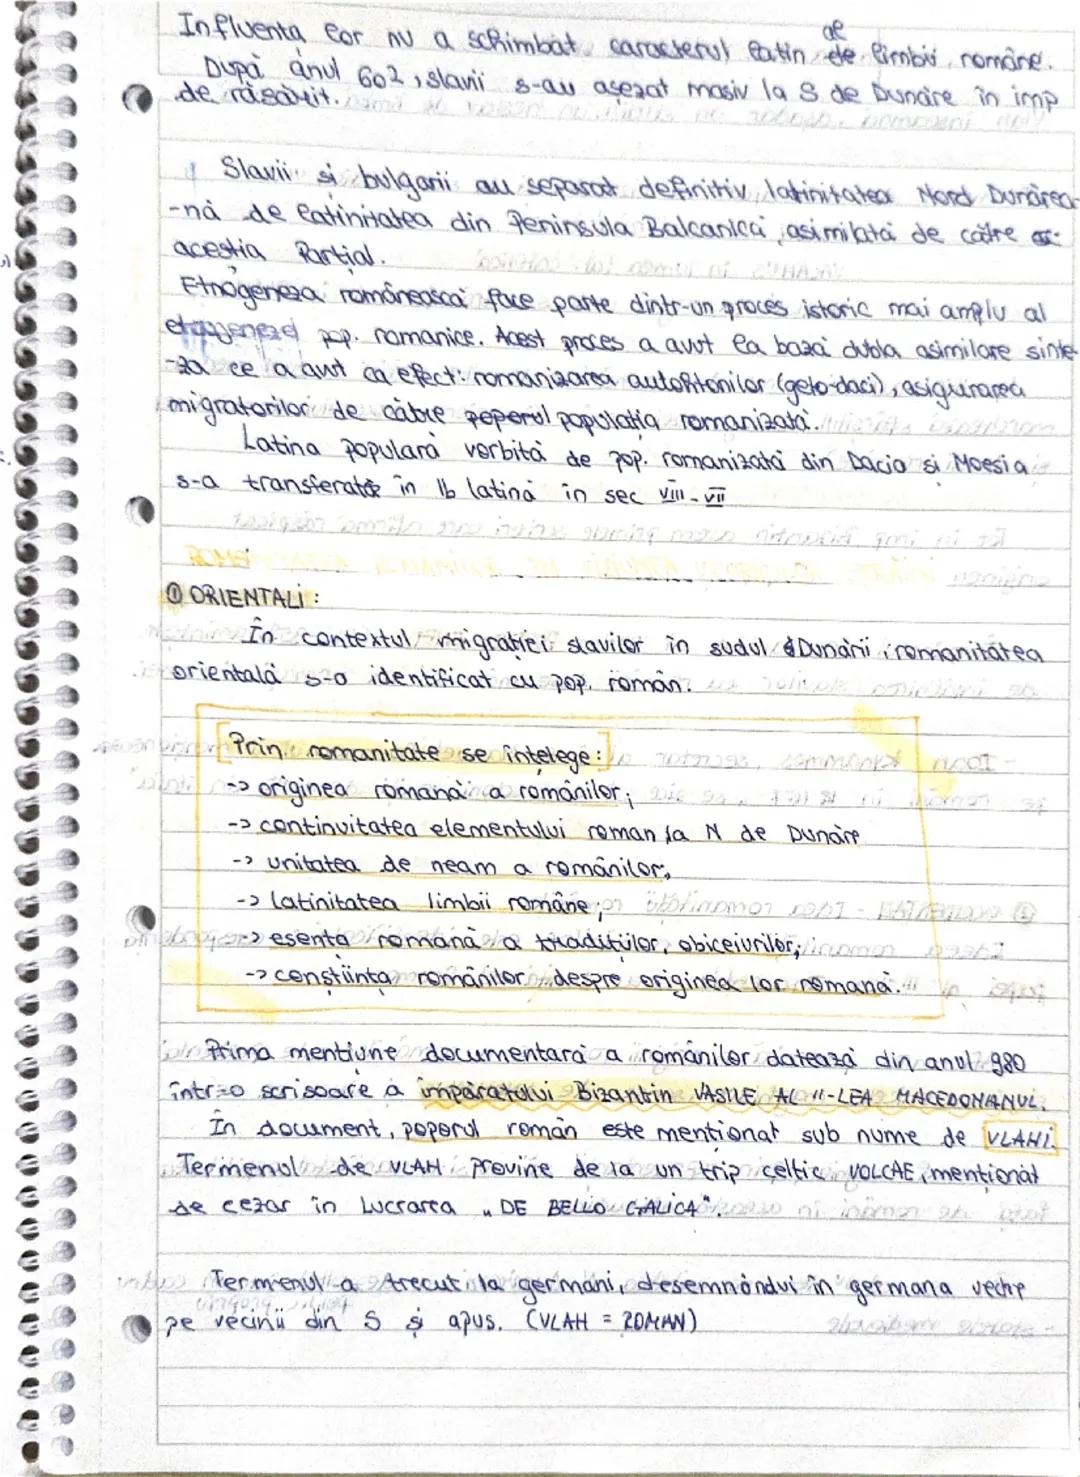 Influența lor nu a schimbat caracterul latin al limbii române.
După anul 602, slavii s-au așezat masiv la S de Dunăre în imp
de răsărit.
Slavii și bulgarii au separat definitiv latinitatea Nord Dunărea-
-nă de latinitatea din Peninsula Balcanică, asimilată de către
aceștia Parțial.
Etnogeneza românească face parte dintr-un proces istoric mai amplu al
etnogenezei pop. romanice. Acest proces a avut la bază dubla asimilare sinte-
-ză ce a avut ca efect: romanizarea autohtonilor (geto-daci), asigurarea
migratorilor de către populația romanizată.
Latina populară vorbită de pop. romanizată din Dacia și Moesia
s-a transferat în lb latină în sec VIII-VII
① ORIENTALI:
În contextul migrației slavilor în sudul Dunării, romanitatea
orientală s-a identificat cu pop. român.
[Prin romanitate se înțelege:]
-> originea romană a românilor;
-> continuitatea elementului roman la N de Dunăre
-> unitatea de neam a românilor;
-> latinitatea limbii române;
-> esența romană a tradițiilor, obiceiurilor;
-> conștiința românilor despre originea lor romană.
Prima mențiune documentară a românilor datează din anul 980
într-o scrisoare a împăratului Bizantin VASILE AL II-LEA MACEDONIANUL.
În document, poporul român este menționat sub nume de VLAHI.
Termenul de VLAH provine de la un trip celtic VOLCAE, menționat
de cezar în Lucrarea „DE BELLO GALICA".
Termenul a trecut la germani, desemnându-i în germana veche
pe vecinii din S și apus. (VLAH = ROMAN)